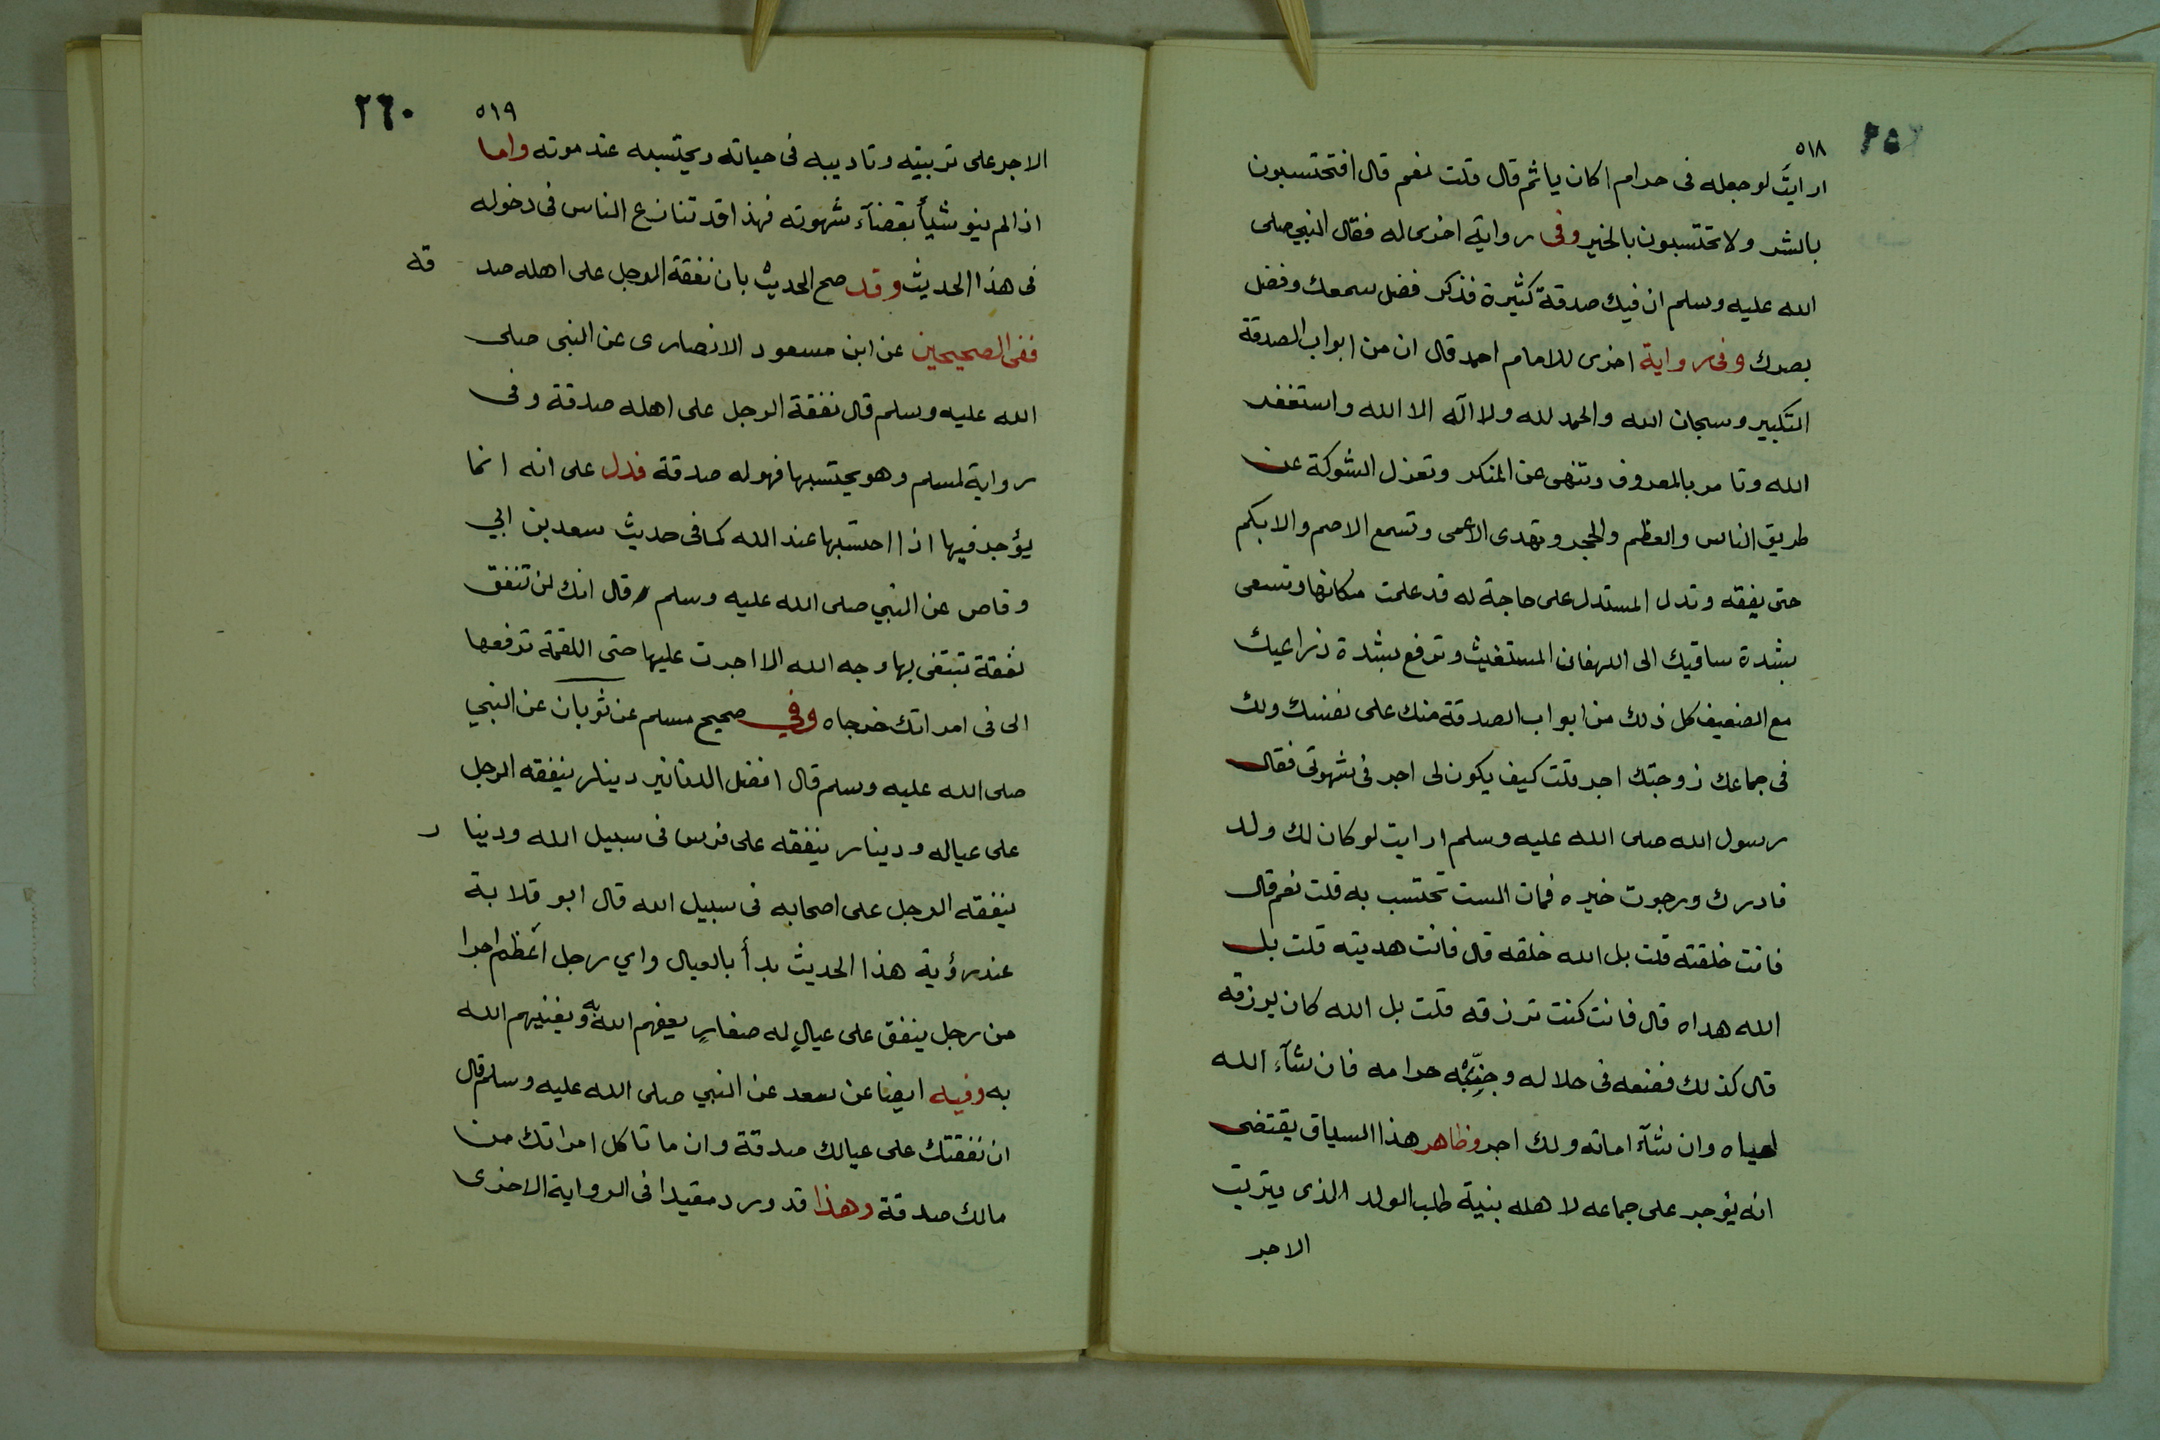 ٥١٨
ارايتَ لو جعله فى حرام اكان ياثم قال قلت نعم قال افتحتسبون
بالشر ولا تحتسبون بالخير وفى رواية اخرى له فقال النبي صلى
الله عليه وسلم ان فيك صدقة كثيرة فذكر فضل سمعك وفضل
بصرك وفى رواية اخرى للامام احمد قال ان من ابواب الصدقة
التكبير وسبحان الله والحمد لله ولا اله الا الله واستغفر
الله وتامر بالمعروف وتنهى عن المنكر وتعزل الشوكة عن
طريق الناس والعظم والحجر وتهدى الاعمى وتسمع الاصم والابكم
حتى يفقه وتدل المستدل على حاجة له قد علمت مكانها وتسعى
بشدة ساقيك الى اللهفان المستغيث وترفع بشدة ذراعيك
مع الضعيف كل ذلك من ابواب الصدقة منك على نفسك ولك
فى جماعك زوجتك اجر قلت كيف يكون لى اجر فى شهوتى فقال
رسول الله صلى الله عليه وسلم ارايت لو كان لك ولد
فادرك ورجوت خيره فمات الست تحتسب به قلت نعم قال
فانت خلقته قلت بل الله خلقه قال فانت هديته قلت بل
الله هداه قال فانت كنت ترزقه قلت بل الله كان يرزقه
قال كذلك فضعه فى حلاله وجنِّبْه حرامه فان شآء الله
احياه وان شآء اماته ولك اجر وظاهر هذا السياق يقتضى
انه يؤجر على جماعه لاهله بنية طلب الولد الذى يترتب
الاجر
٢٦٠
٥١٩
الاجر على تربيته وتاديبه فى حياته ويحتسبه عند موته واما
اذا لم ينو شيأ بقضآء شهوته فهذا قد تنازع الناس فى دخوله
فى هذا الحديث وقد صح الحديث بان نفقة الرجل على اهله صد قه
ففى الصحيحين عن ابن مسعود الانصارى عن النبى صلى
الله عليه وسلم قال نفقة الرجل على اهله صدقة وفى
رواية لمسلم وهو يحتسبها فهو له صدقة فدل على انه انما
يؤجر فيها اذا احتسبها عند الله كما فى حديث سعد بن ابي
وقاص عن النبي صلى الله عليه وسلم قال انك لن تنفق
نفقة تبتغى بها وجه الله الا اجرت عليها حتى اللقمة ترفعها
الى فى امراتك خرجاه وفي صحيح مسلم عن ثوبان عن النبي
صلى الله عليه وسلم قال افضل الدنانير دينار ينفقه الرجل
على عياله ودينار ينفقه على فرس فى سبيل الله ودينا ر
ينفقه الرجل على اصحابه فى سبيل الله قال ابو قلابة
عند رؤية هذا الحديث بدأ بالعيال واي رجل اعظم اجرا
من رجل ينفق على عيالٍ له صغارٍ يعفهم الله به ويغنيهم الله
به وفيه ايضا عن سعد عن النبي صلى الله عليه وسلم قال
ان نفقتك على عيالك صدقة وان ما تاكل امراتك من
مالك صدقة وهذا قد ورد مقيدا فى الرواية الاخرى